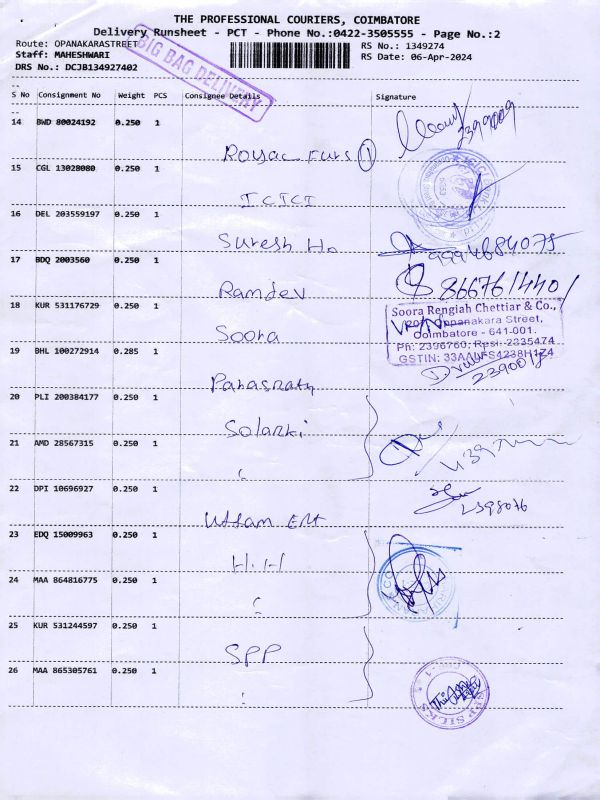 THE PROFESSIONAL COURIERS, COIMBATORE
Delivery Runsheet - PCT - Phone No.:0422-3505555 - Page No.:2
Route: OPANAKARASTREET
RS No.: 1349274
Staff: MAHESHWARI
RS Date: 06-Apr-2024
DRS No.: DCJB134927402
BIG BAG DELIVERY
S No Consignment No Weight PCS Consignee Details Signature
14 BWD 80024192 0.250 1
Royal Furs 1
15 CGL 13028080 0.250 1
ICICI
16 DEL 203559197 0.250 1
Suresh Ho 9994684075
17 BDQ 2003560 0.250 1
Ramdev 8667614401
18 KUR 531176729 0.250 1
Soora
Soora Rengiah Chettiar & Co.,
Oppanakara Street,
Coimbatore - 641-001.
Ph: 2396760, Resi: 2335474
19 BHL 100272914 0.285 1
20 PLI 200384177 0.250 1
Solanki
21 AMD 28567315 0.250 1
22 DPI 10696927 0.250 1
Uttam Ent 2398076
23 EDQ 15009963 0.250 1
H.H
24 MAA 864816775 0.250 1
25 KUR 531244597 0.250 1
SPP
26 MAA 865305761 0.250 1
SPP SILKS